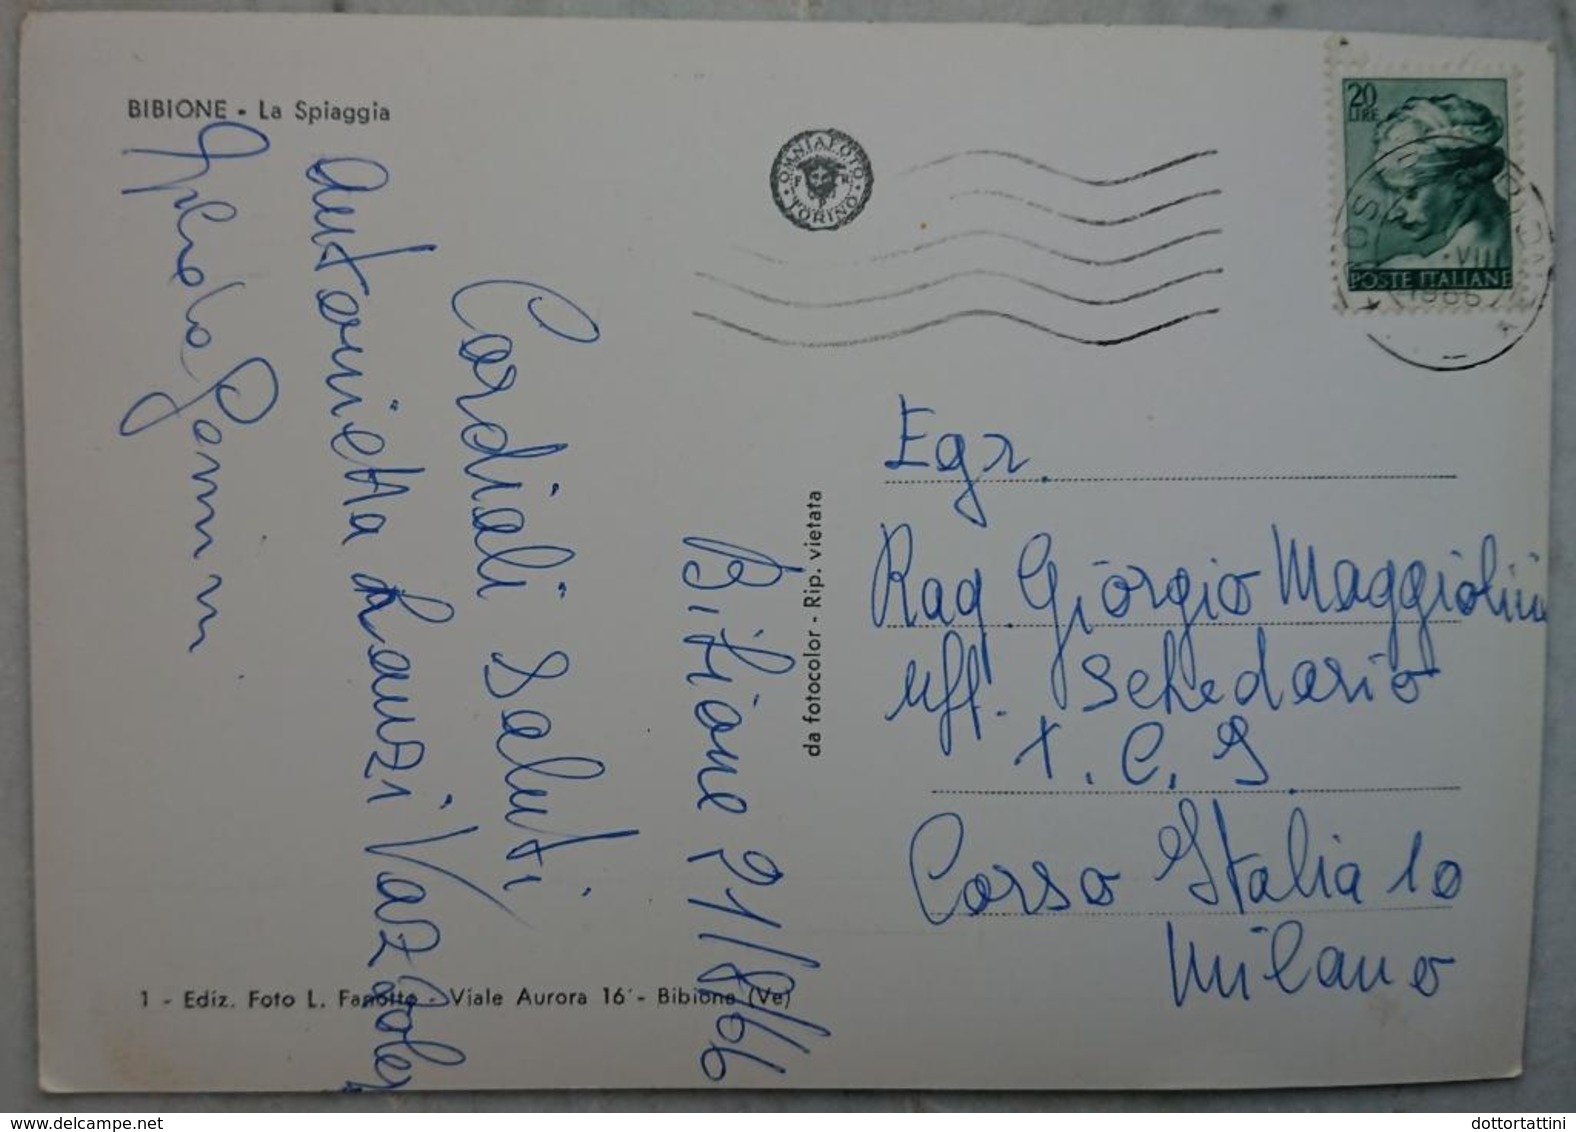 BIBIONE - La Spiaggia
OMNIAFOTO
TORINO
20
LIRE
POSTE ITALIANE
VIII
1966
Bibione 21/8/66
Cordiali saluti
Antonietta
da fotocolor - Rip. vietata
Egr.
Rag. Giorgio Maggiolini
uff. Schedario
T. C. I.
Corso Italia 10
Milano
1 - Ediz. Foto L. Fanotto - Viale Aurora 16 - Bibione (Ve)
dottortattini